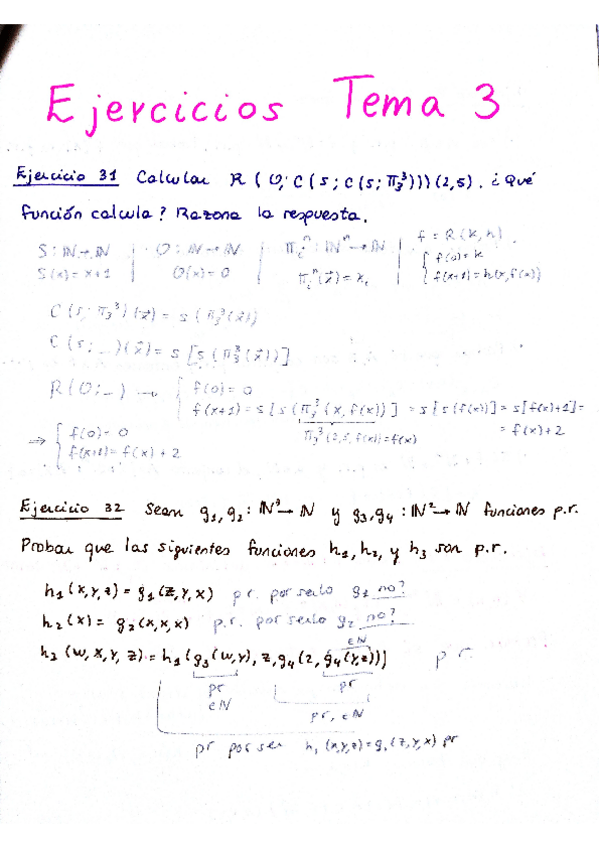 Ejercicios Tema 3
Ejercicio 31 Calcular R(O; C(s; C(s; π₃³)))(2,5). ¿Qué
función calcula? Razona la respuesta.
S: ℕ→ℕ | O: ℕ→ℕ | πᵢⁿ: ℕⁿ→ℕ | f = R(k, h)
S(x) = x+1 | O(x) = 0 | πᵢⁿ(x⃗) = xᵢ | { f(0) = k
f(x+1) = h(x, f(x))
C(s; π₃³)(x⃗) = s(π₃³(x⃗))
C(s; _)(x⃗) = s[s(π₃³(x⃗))]
R(O; _) → { f(0) = 0
f(x+1) = s[s(π₃³(x, f(x))] = s[s(f(x))] = s[f(x)+1] =
π₃³(2,5, f(x)) = f(x) = f(x)+2
⇒ { f(0) = 0
f(x+1) = f(x) + 2
Ejercicio 32 Sean g₁, g₂: ℕ³→ℕ y g₃, g₄: ℕ²→ℕ funciones p.r.
Probar que las siguientes funciones h₁, h₂, y h₃ son p.r.
h₁(x,y,z) = g₁(z,y,x) p.r. por serlo g₁ no?
h₂(x) = g₂(x,x,x) p.r. por serlo g₂ no?
∈ℕ
h₃(w,x,y,z) = h₁(g₃(w,y), z, g₄(2, g₄(y,z))] p r.
pr pr
∈ℕ
pr, ∈ℕ
pr por ser h₁(x,y,z) = g₁(z,y,x) pr